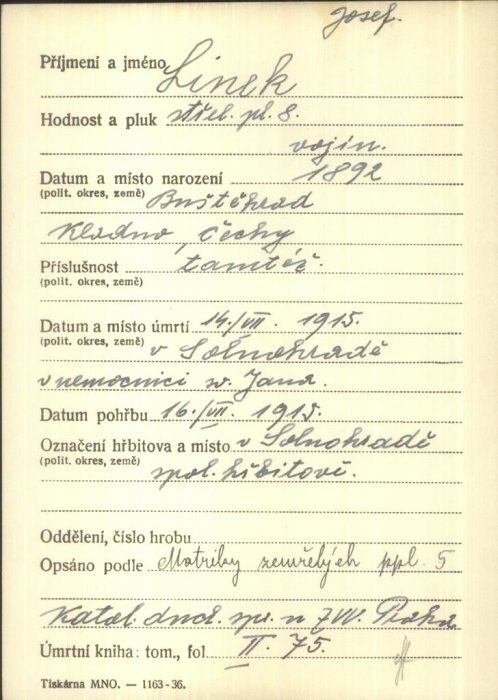 Josef.
Příjmení a jméno Linek
Hodnost a pluk střel. pl. 8.
vojín.
Datum a místo narození 1892
(polit. okres, země) Buštěhrad
Kladno, Čechy
Příslušnost tamtéž.
(polit. okres, země)
Datum a místo úmrtí 14./VII. 1915.
(polit. okres, země) v Solnohradě
v nemocnici sv. Jana.
Datum pohřbu 16./VII. 1915.
Označení hřbitova a místo v Solnohradě
(polit. okres, země) spol. hřbitově.
Oddělení, číslo hrobu
Opsáno podle Matriky zemřelých ppl. 5
Katol. duch. spr. u ZVV. Praha
Úmrtní kniha: tom., fol. II. 75.
Tiskárna MNO. — 1163-36.